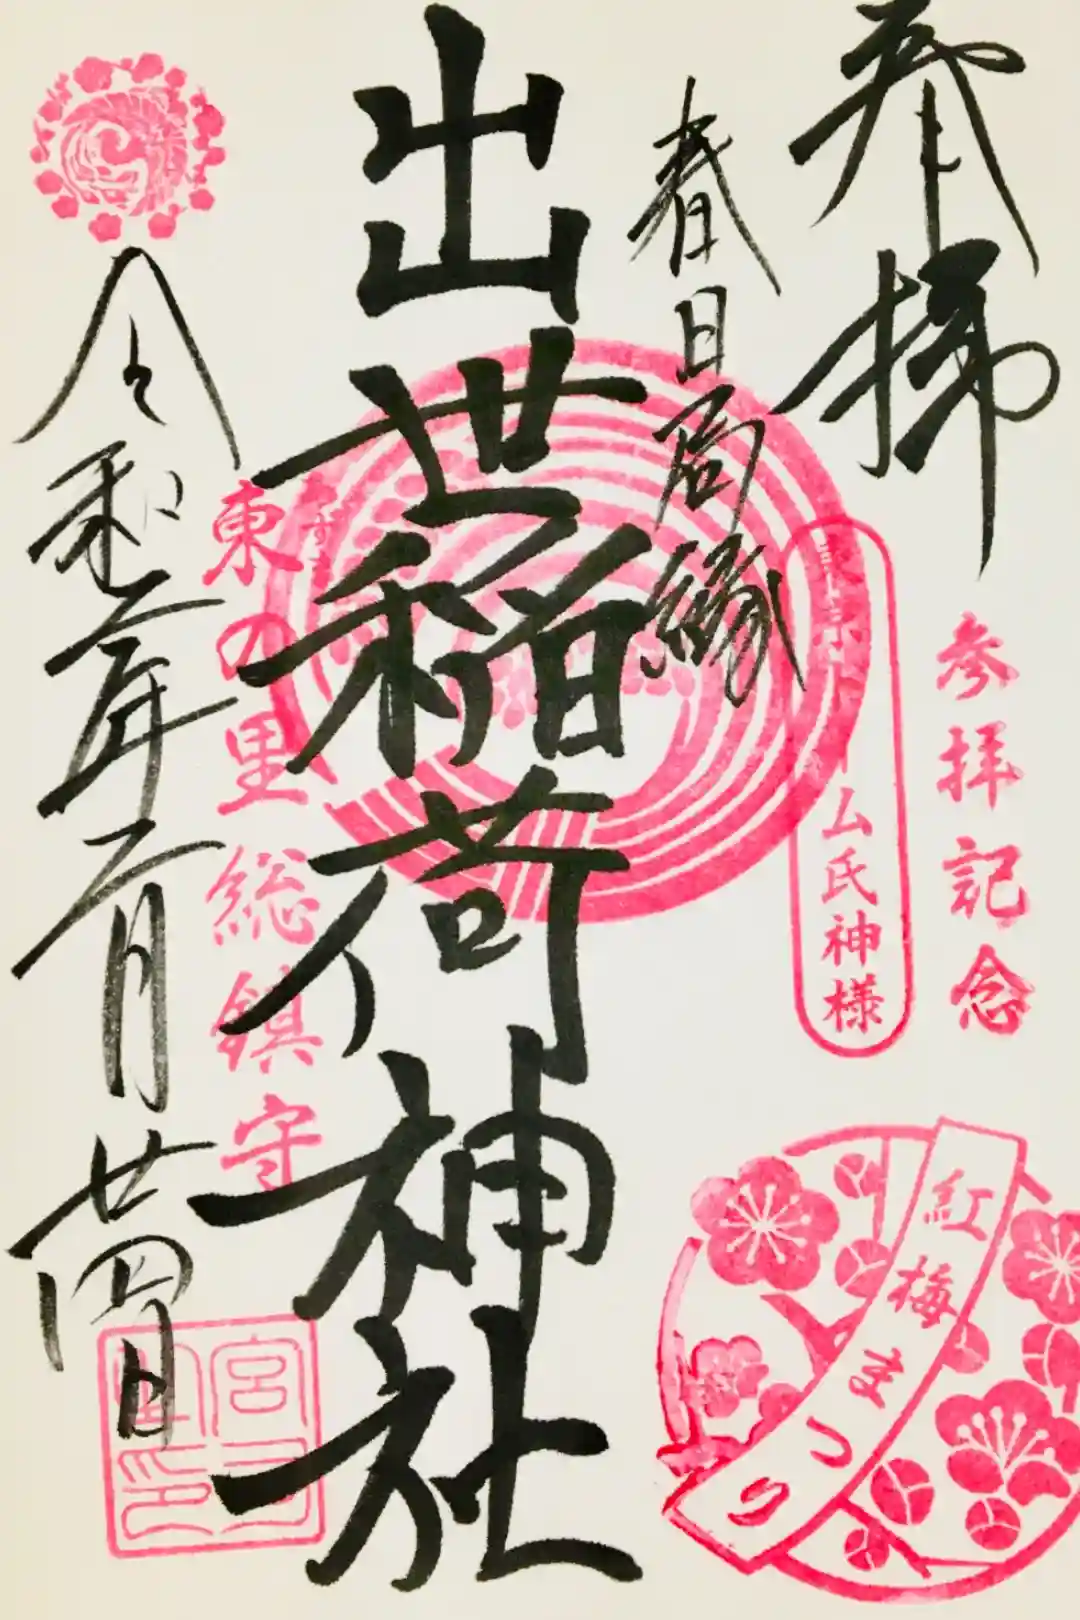 奉拝
参拝記念
東京ドーム氏神様
紅梅まつり
春日局縁
出世稲荷神社
東の里総鎮守
令和二年二月廿四日